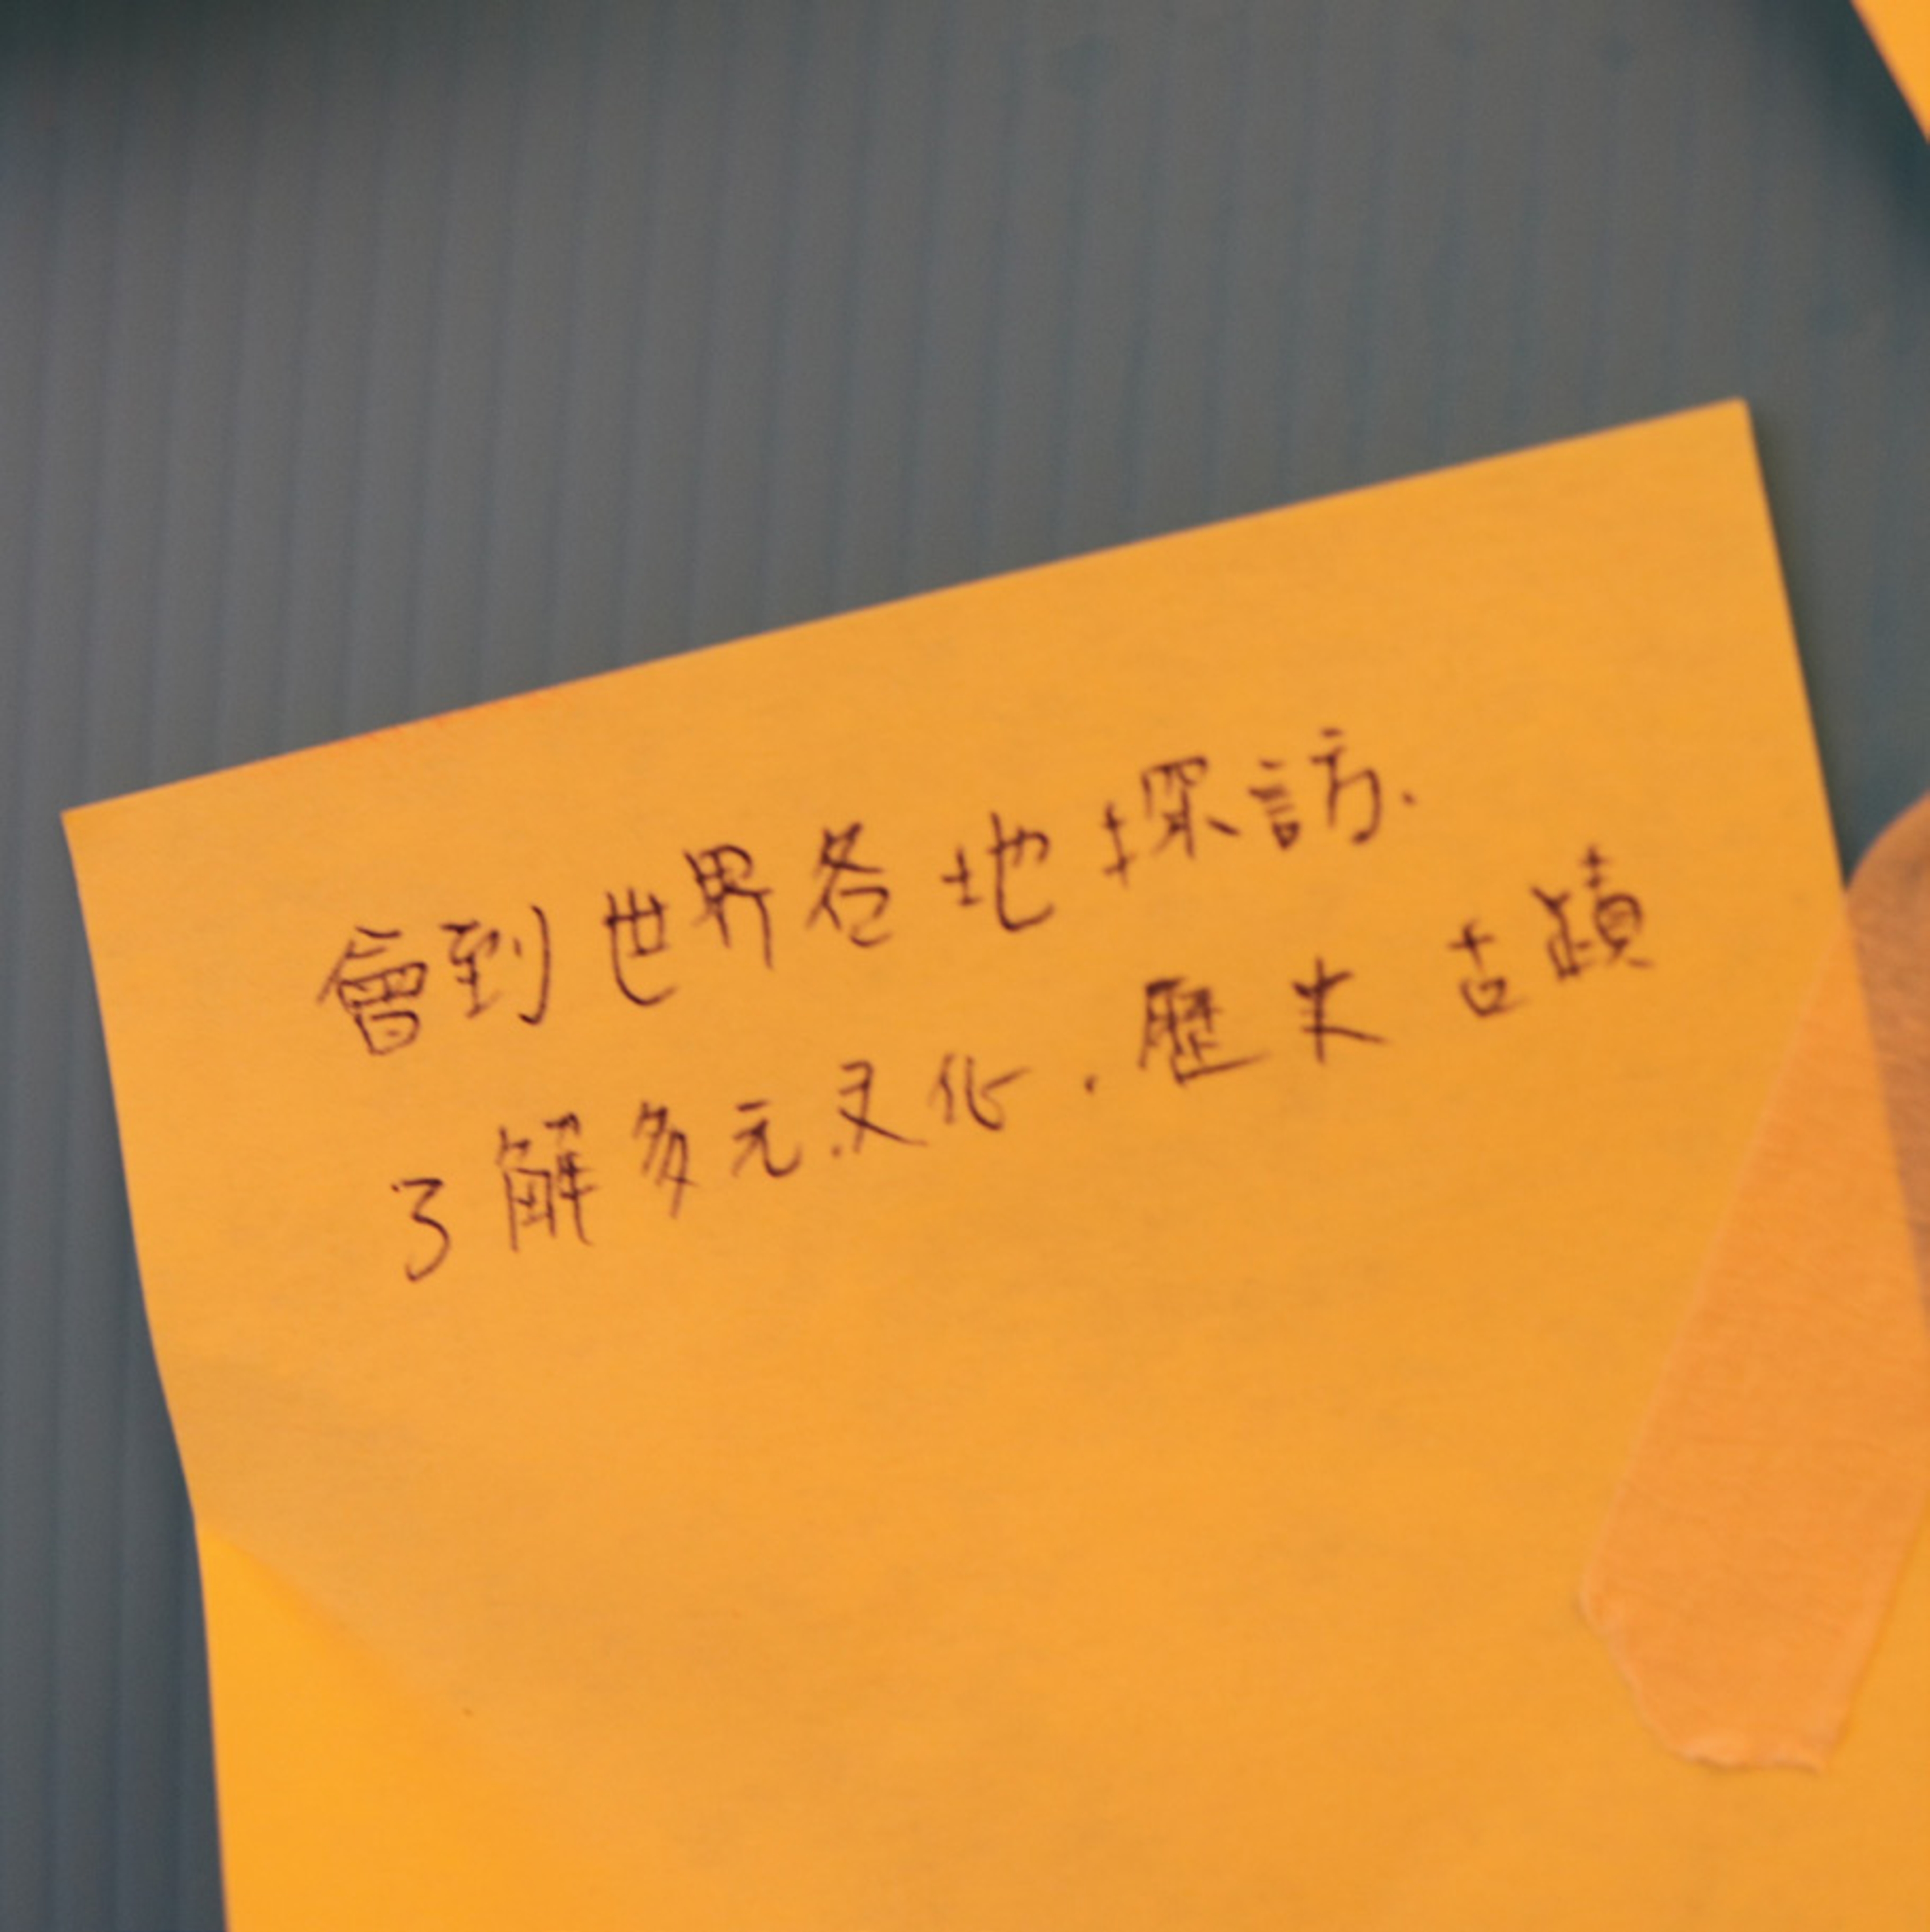 會到世界各地探訪、
了解多元文化、歷史古蹟